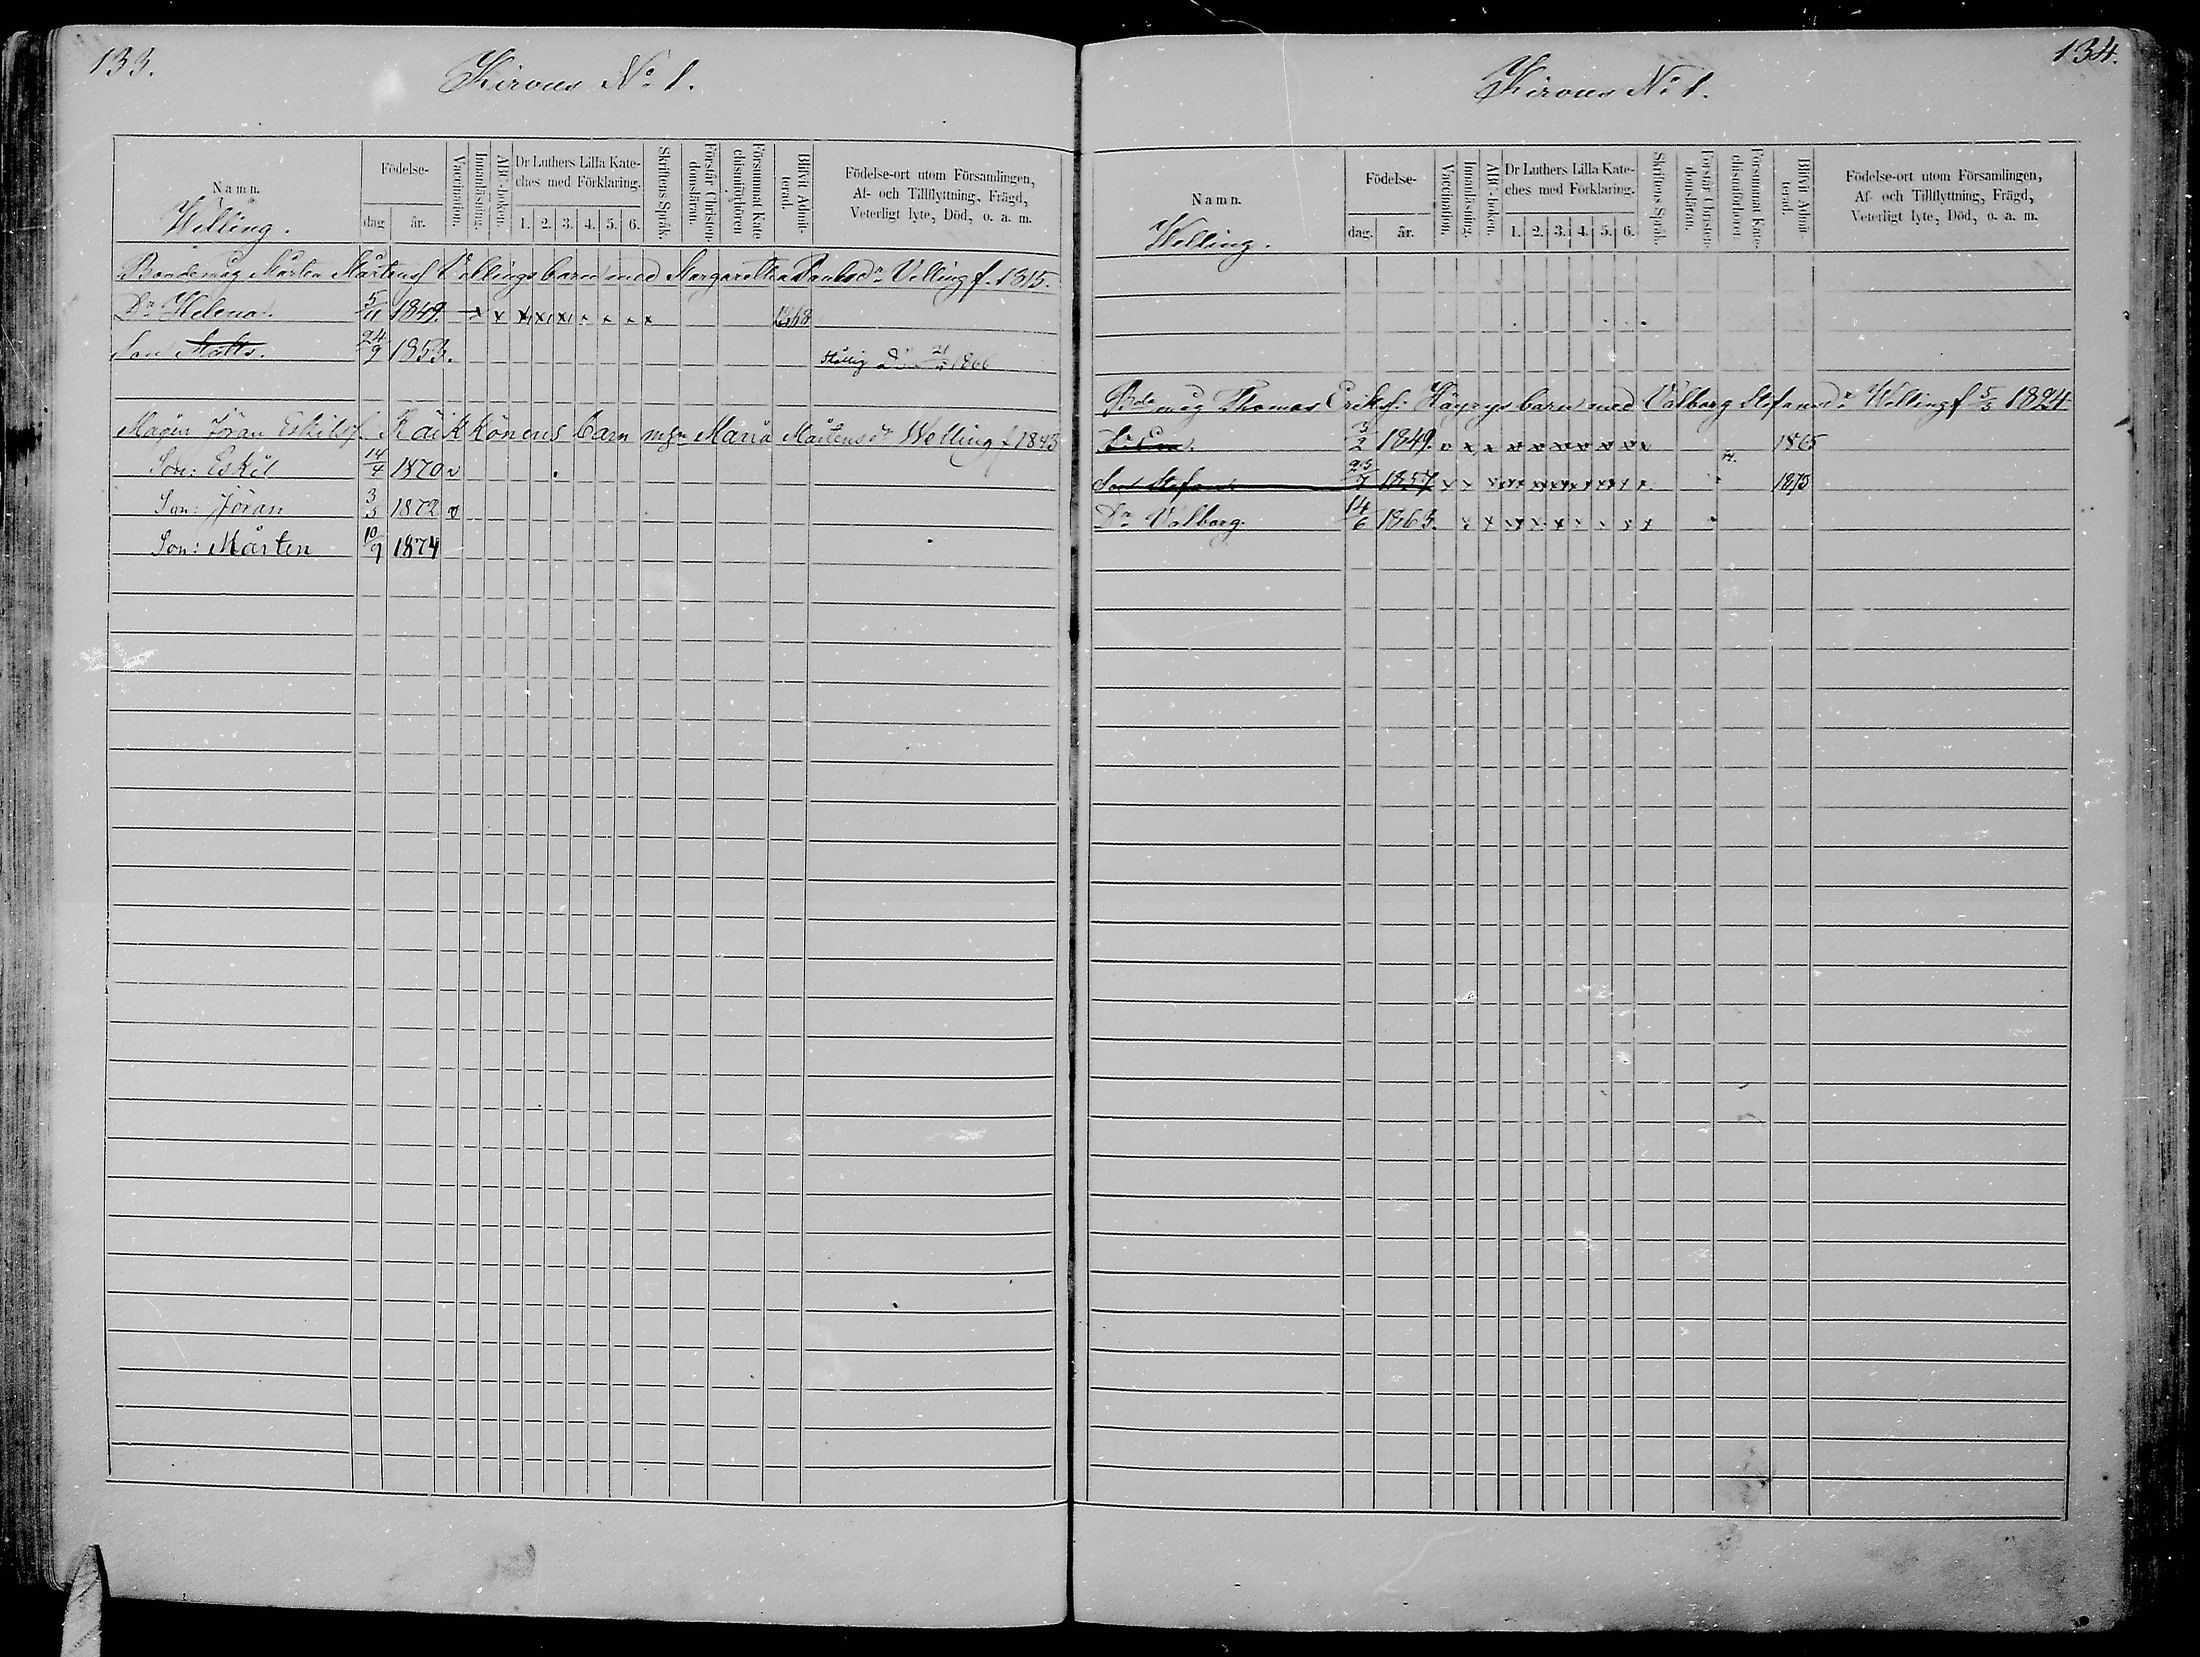 133.
Kirvus No 1.
Namn.
Födelse-
dag
år.
Vaccination.
Innanläsning.
ABC-boken.
Dr Luthers Lilla Kate-
ches med Förklaring.
1. 2. 3. 4. 5. 6.
Skriftens Språk.
Förstår Christen-
domsläran.
Försummat Kate-
chismiförhören
Blifvit Admit-
terad.
Födelse-ort utom Församlingen,
Af- och Tillflyttning, Frägd,
Veterligt lyte, Död, o. a. m.
Welling.
Bondemåg Mårten Mårtensf Vellings barn med Margaretha Paulsdr Velling f. 1815.
Dr Helena. 5/11 1849. x x x x x x x x x 1868
Son Matts. 24/9 1853. 1866
Mågen Jöran Eskilsf. Räikkönens barn m hu Maria Mårtensdr Welling f 1843
Son: Eskil 14/4 1870 v
Son: Jöran 3/3 1872 v
Son: Mårten 10/9 1874
134.
Kirvus No 1.
Namn.
Födelse-
dag.
år.
Vaccination.
Innanläsning.
ABC-boken.
Dr Luthers Lilla Kate-
ches med Förklaring.
1. 2. 3. 4. 5. 6.
Skriftens Språk.
Förstår Christen-
domsläran.
Försummat Kate-
chismiförhören.
Blifvit Admit-
terad.
Födelse-ort utom Församlingen,
Af- och Tillflyttning, Frägd,
Veterligt lyte, Död, o. a. m.
Welling.
Bdemåg Thomas Eriksf. Häyrys barn med Valborg Stefansdr Welling f 5/3 1824.
3/2 1849. x x x x x x x x x x 1865
Son Stefan 25/7 1857 x x x x x x x x x x 1873
Dr Valborg. 14/6 1863. x x x x x x x x x